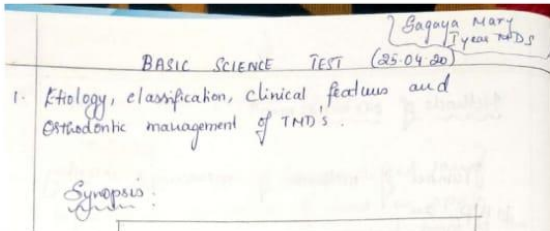 Sagaya Mary
I year MDS
BASIC SCIENCE TEST (25-04-20)
1. Etiology, classification, clinical features and
Orthodontic management of TMD's.
Synopsis :